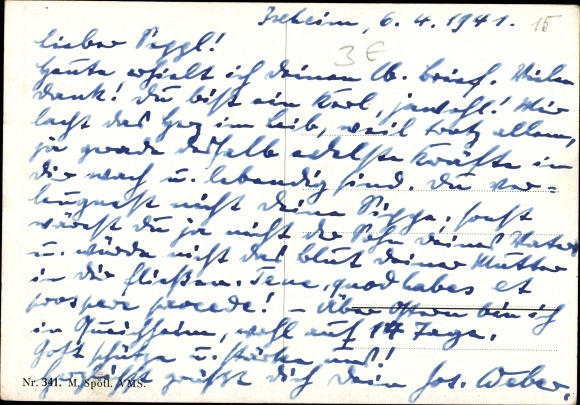 Ixheim, 6.4.1941. 15
3 €
Lieber Seppl!
Heute erhielt ich deinen lb. Brief. Vielen
Dank! Du bist ein Kerl, jawohl! Mir
lacht das Herz im Leib, weil trotz allem,
ja gerade deshalb edelste Kräfte in
dir wach u. lebendig sind. Du ver=
leugnest nicht deine Sippe, sonst
wärest du ja nicht der Sohn deines Vaters
u. würde nicht das Blut deiner Mutter
in dir fließen. Tene, quod habes et
prospere procede! – Über Ostern bin ich
in Queichheim, wohl auf 14 Tage.
Gott schütze u. stärke uns!
Herzlichst grüßt dich dein Jos. Weber.
Nr. 341. M. Spötl, VMS.